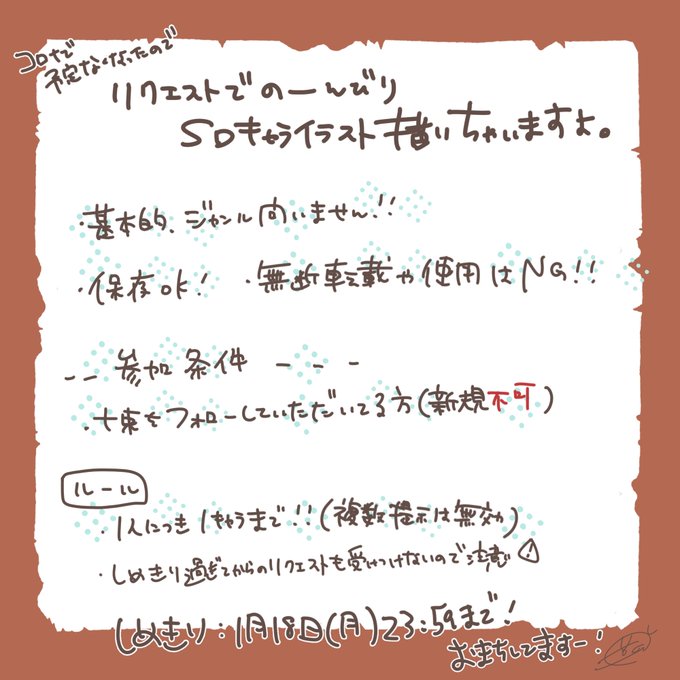 コロナで
予定なくなったので
リクエストでのーんびり
SDキャライラスト描いちゃいますよ。
・基本的、ジャンル問いません!!
・保存OK! ・無断転載や使用はNG!!
-- 参加条件 ---
・七束をフォローしていただいてる方(新規不可)
ルール
・1人につき1キャラまで!!(複数提示は無効)
・しめきり過ぎてからのリクエストも受けつけないので注意⚠
しめきり:1月18日(月)23:59まで!
おまちしてますー!